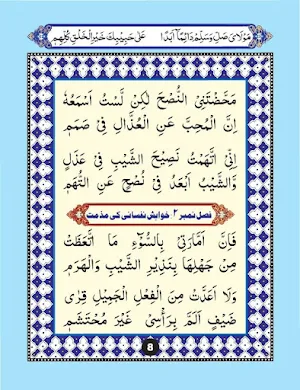 مَوْلَاىَ صَلِّ وَسَلِّمْ دَائِمًا اَبَدًا عَلٰى حَبِيْبِكَ خَيْرِ الْخَلْقِ كُلِّهِمِ
مَحَّضْتَنِى النُّصْحَ لٰكِنْ لَّسْتُ اَسْمَعُهٗ
اِنَّ الْمُحِبَّ عَنِ الْعُذَّالِ فِىْ صَمَمِ
اِنِّى اتَّهَمْتُ نَصِيْحَ الشَّيْبِ فِىْ عَذَلٍ
وَالشَّيْبُ اَبْعَدُ فِىْ نُصْحٍ عَنِ التُّهَمِ
فصل نمبر ۲: خواہش نفسانی کی مذمت
فَاِنَّ اَمَّارَتِىْ بِالسُّوْٓءِ مَا اتَّعَظَتْ
مِنْ جَهْلِهَا بِنَذِيْرِ الشَّيْبِ وَالْهَرَمِ
وَلَا اَعَدَّتْ مِنَ الْفِعْلِ الْجَمِيْلِ قِرٰى
ضَيْفٍ اَلَمَّ بِرَأْسِىْ غَيْرَ مُحْتَشَمِ
8